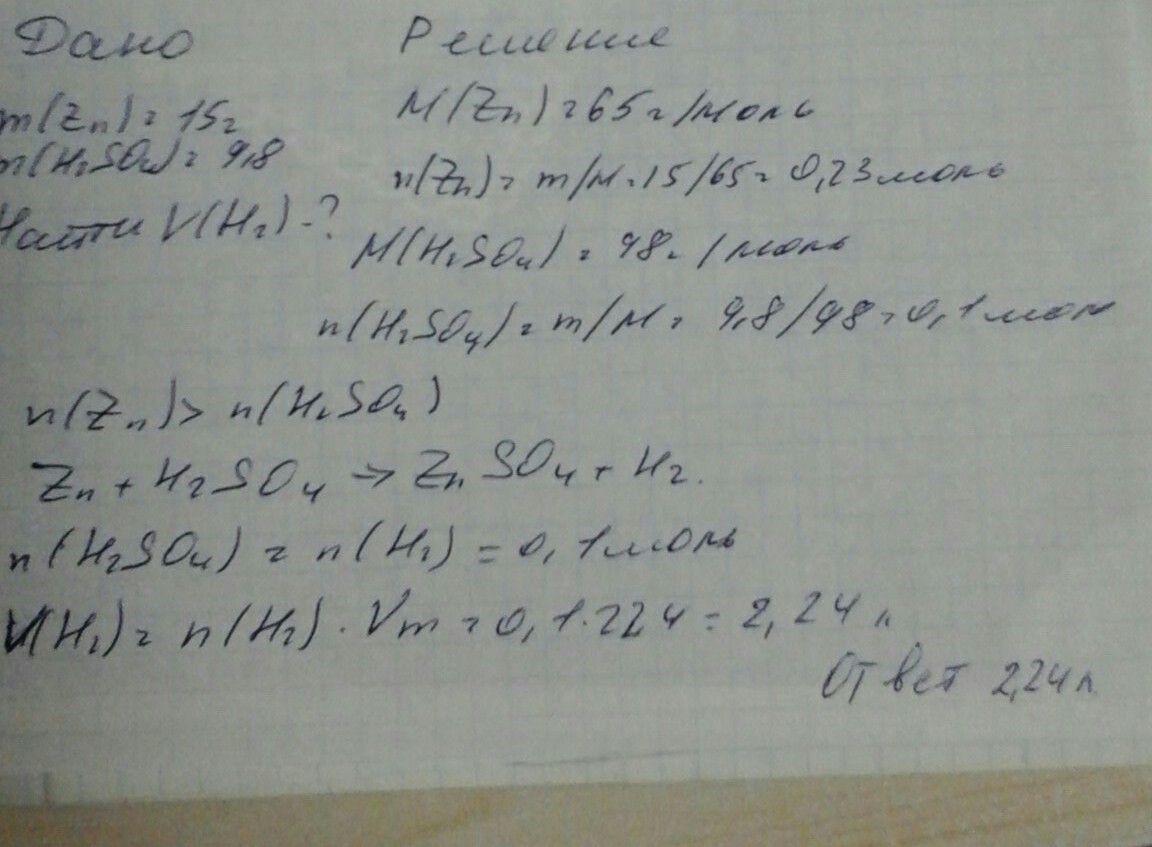 Дано Решение
m(Zn) = 15г M(Zn) = 65 г/моль
m(H₂SO₄) = 9,8 n(Zn) = m/M = 15/65 = 0,23 моль
Найти V(H₂) - ? M(H₂SO₄) = 98 г/моль
n(H₂SO₄) = m/M = 9,8/98 = 0,1 мол
n(Zn) > n(H₂SO₄)
Zn + H₂SO₄ → ZnSO₄ + H₂.
n(H₂SO₄) = n(H₂) = 0,1 моль
V(H₂) = n(H₂) · Vm = 0,1 · 22,4 = 2,24 л
Ответ 2,24 л